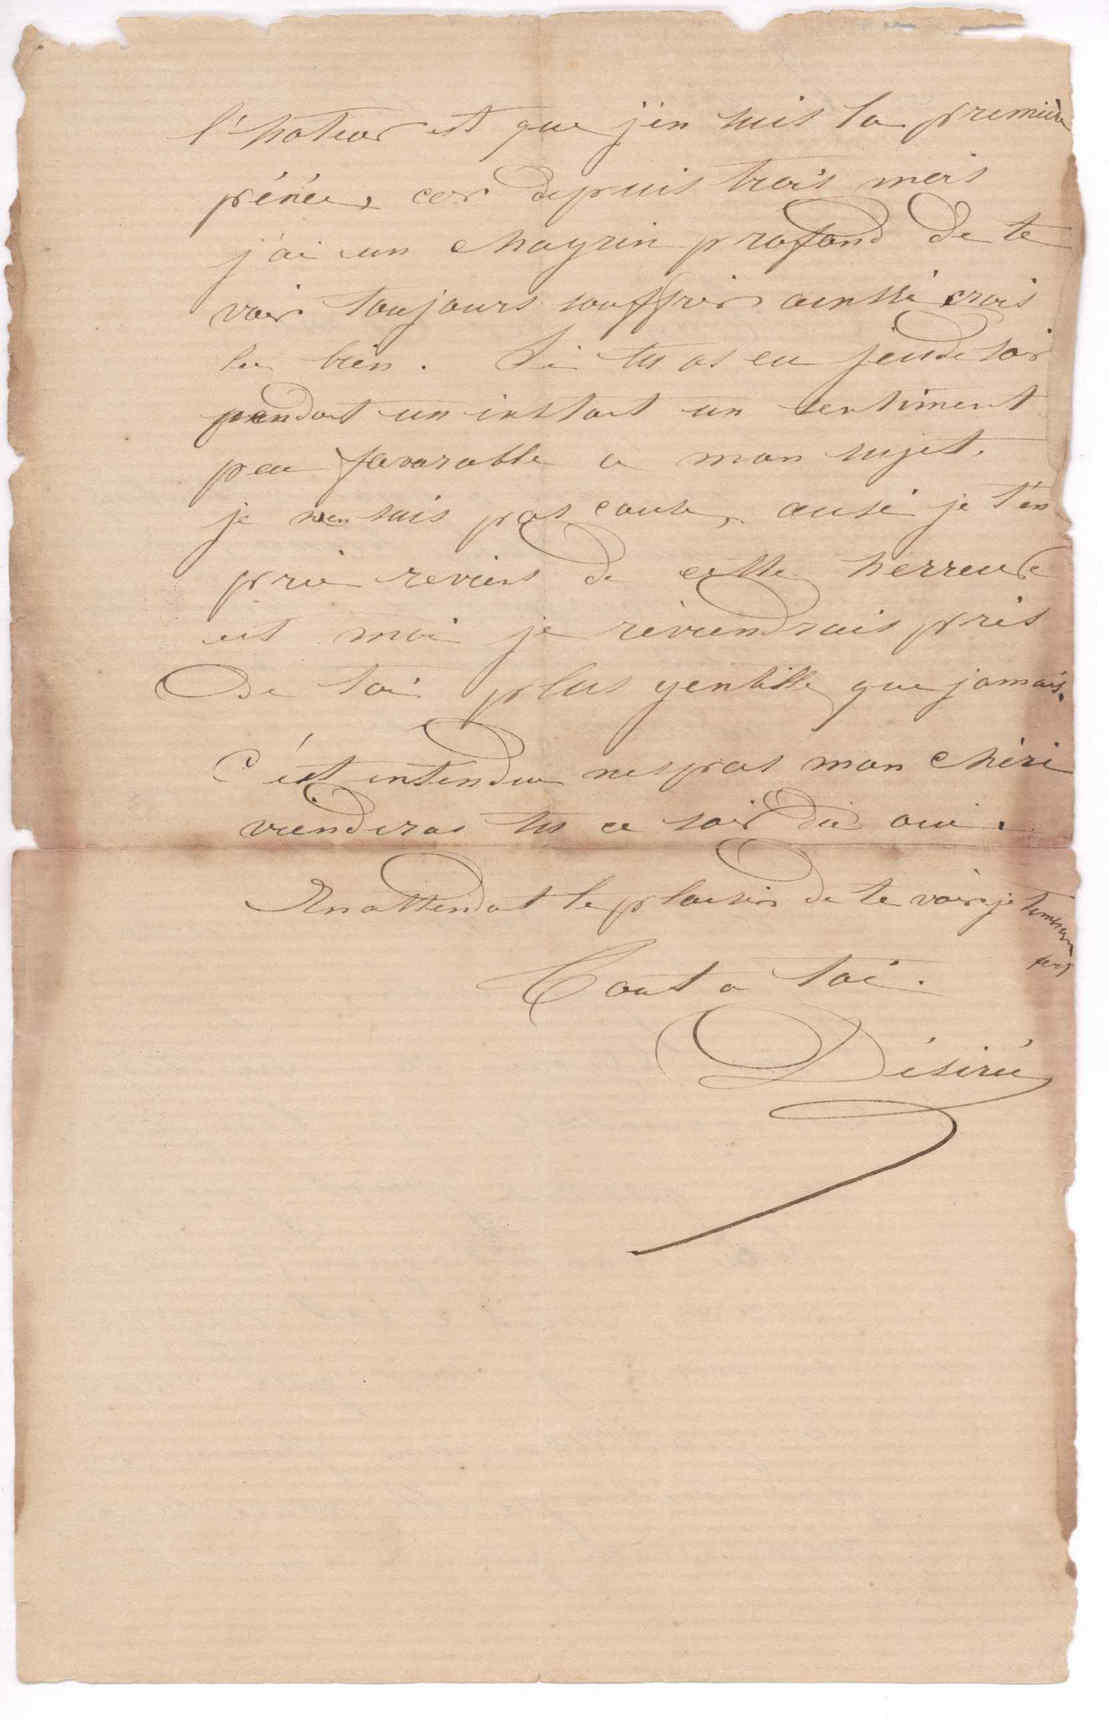 l'hoteur est que j'en suis la première
pénée, car depuis trois mois
j'ai un chagrin profond de te
voir toujours souffrir ainssi crois
le bien. Si tu as eu jeudi soir
pendant un instant un sentiment
peu favorable a mon sujet.
je n'en suis pas cause, ausi je t'en
prie reviens de cette herreur
et moi je reviendrais près
de toi plus gentille que jamais.
C'est entendu nespas mon chéri
vienderas tu ce soir di oui.
En attendant le plaisir de te voir je
Tout a toi.
Désirée